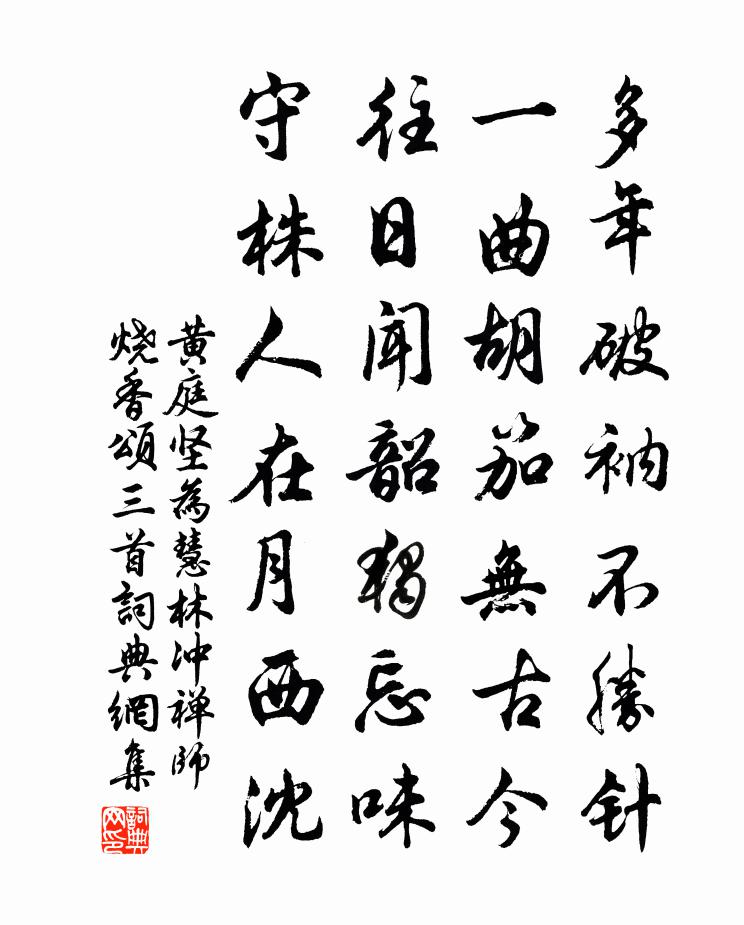 多年破衲不勝针
一曲胡笳無古今
往日聞韶獨忘味
守株人在月西沈
黄庭坚為慧林冲禅師
烧香頌三首詞典網集
詞典网印